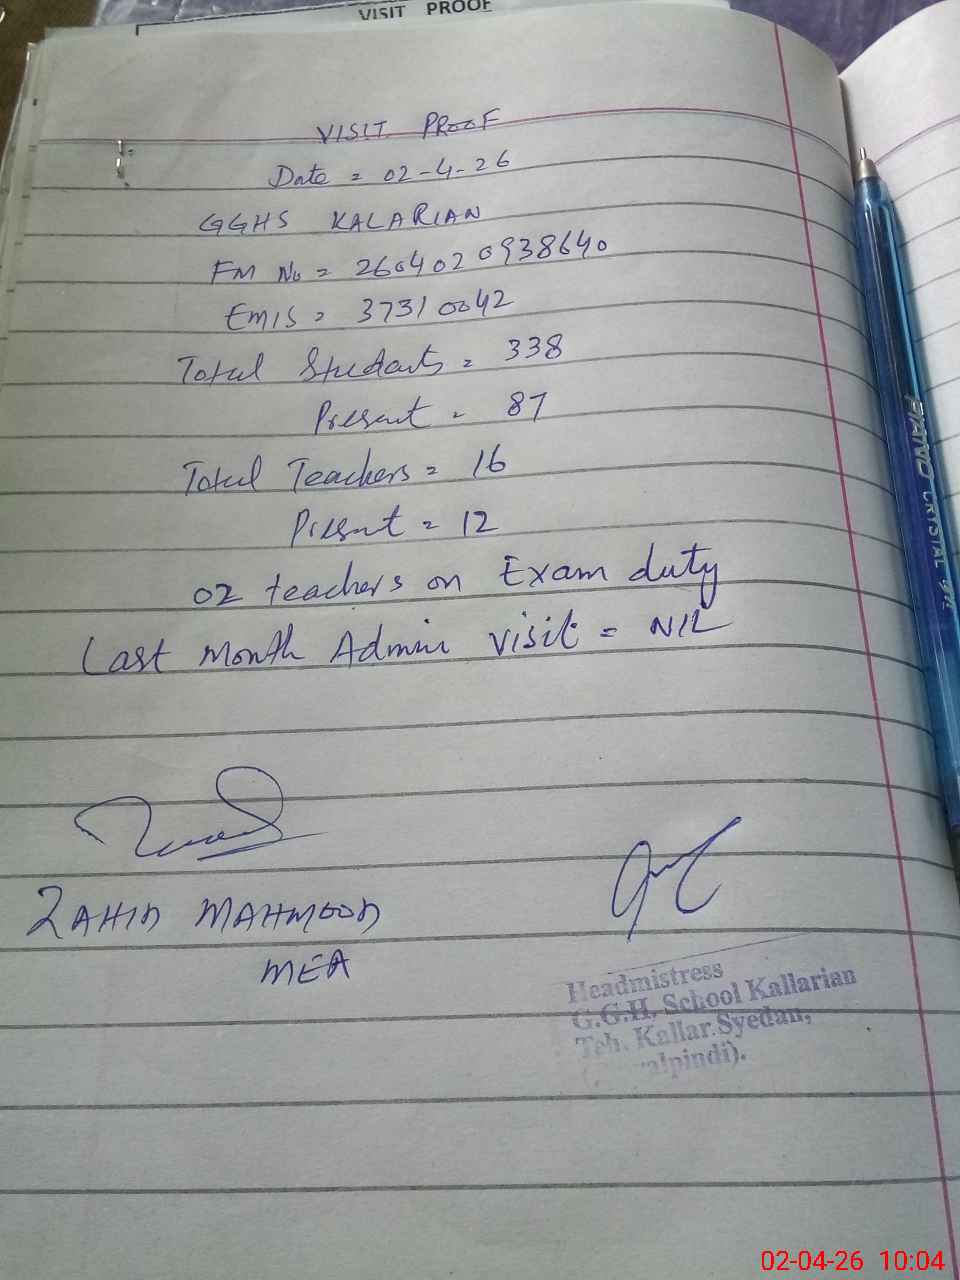 VISIT PROOF
VISIT PROOF
Date = 02-4-26
GGHS KALARIAN
FM No = 2604020938640
EMIS = 37310042
Total Students = 338
Present = 87
Total Teachers = 16
Present = 12
02 teachers on Exam duty
Last Month Admin visit = NIL
ZAHID MAHMOOD
MEA
Headmistress
G.G.H. School Kallarian
Teh. Kallar Syedan,
alpindi).
PIANO CRYSTAL
02-04-26 10:04